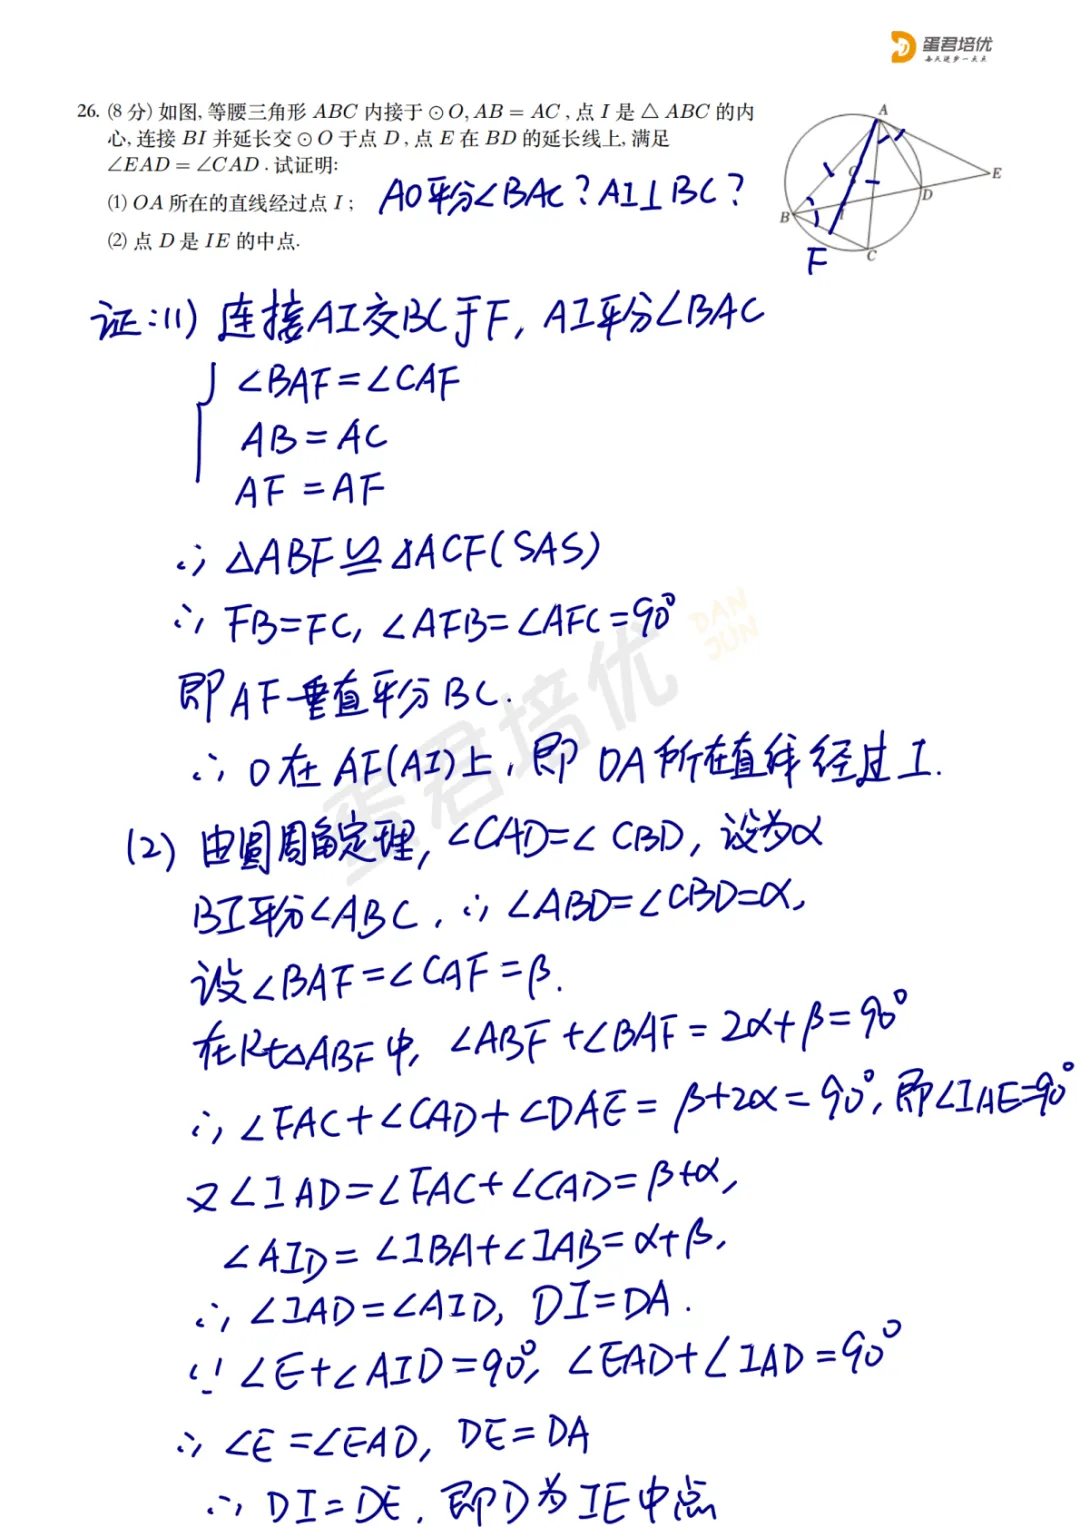 蛋君培优
每天进步一点点
26. (8 分) 如图, 等腰三角形 ABC 内接于 ⊙O, AB = AC, 点 I 是 △ ABC 的内
心, 连接 BI 并延长交 ⊙O 于点 D, 点 E 在 BD 的延长线上, 满足
∠EAD = ∠CAD. 试证明:
(1) OA 所在的直线经过点 I;
AO平分∠BAC? AI⊥BC?
(2) 点 D 是 IE 的中点.
A
E
D
O
B
I
C
F
证:(1) 连接AI交BC于F, AI平分∠BAC
∠BAF=∠CAF
AB=AC
AF=AF
∴ △ABF≌△ACF(SAS)
∴ FB=FC, ∠AFB=∠AFC=90°
DAN
JUN
即AF垂直平分BC.
蛋君培优
∴ O在AF(AI)上, 即 OA所在直线经过I.
(2) 由圆周角定理, ∠CAD=∠CBD, 设为α
BI平分∠ABC, ∴ ∠ABD=∠CBD=α,
设∠BAF=∠CAF=β.
在Rt△ABF中, ∠ABF+∠BAF=2α+β=90°
∴ ∠FAC+∠CAD+∠DAE=β+2α=90°, 即∠IAE=90°
又∠IAD=∠FAC+∠CAD=β+α,
∠AID=∠IBA+∠IAB=α+β,
∴ ∠IAD=∠AID, DI=DA.
∵ ∠E+∠AID=90°, ∠EAD+∠IAD=90°
∴ ∠E=∠EAD, DE=DA
∴ DI=DE. 即D为IE中点